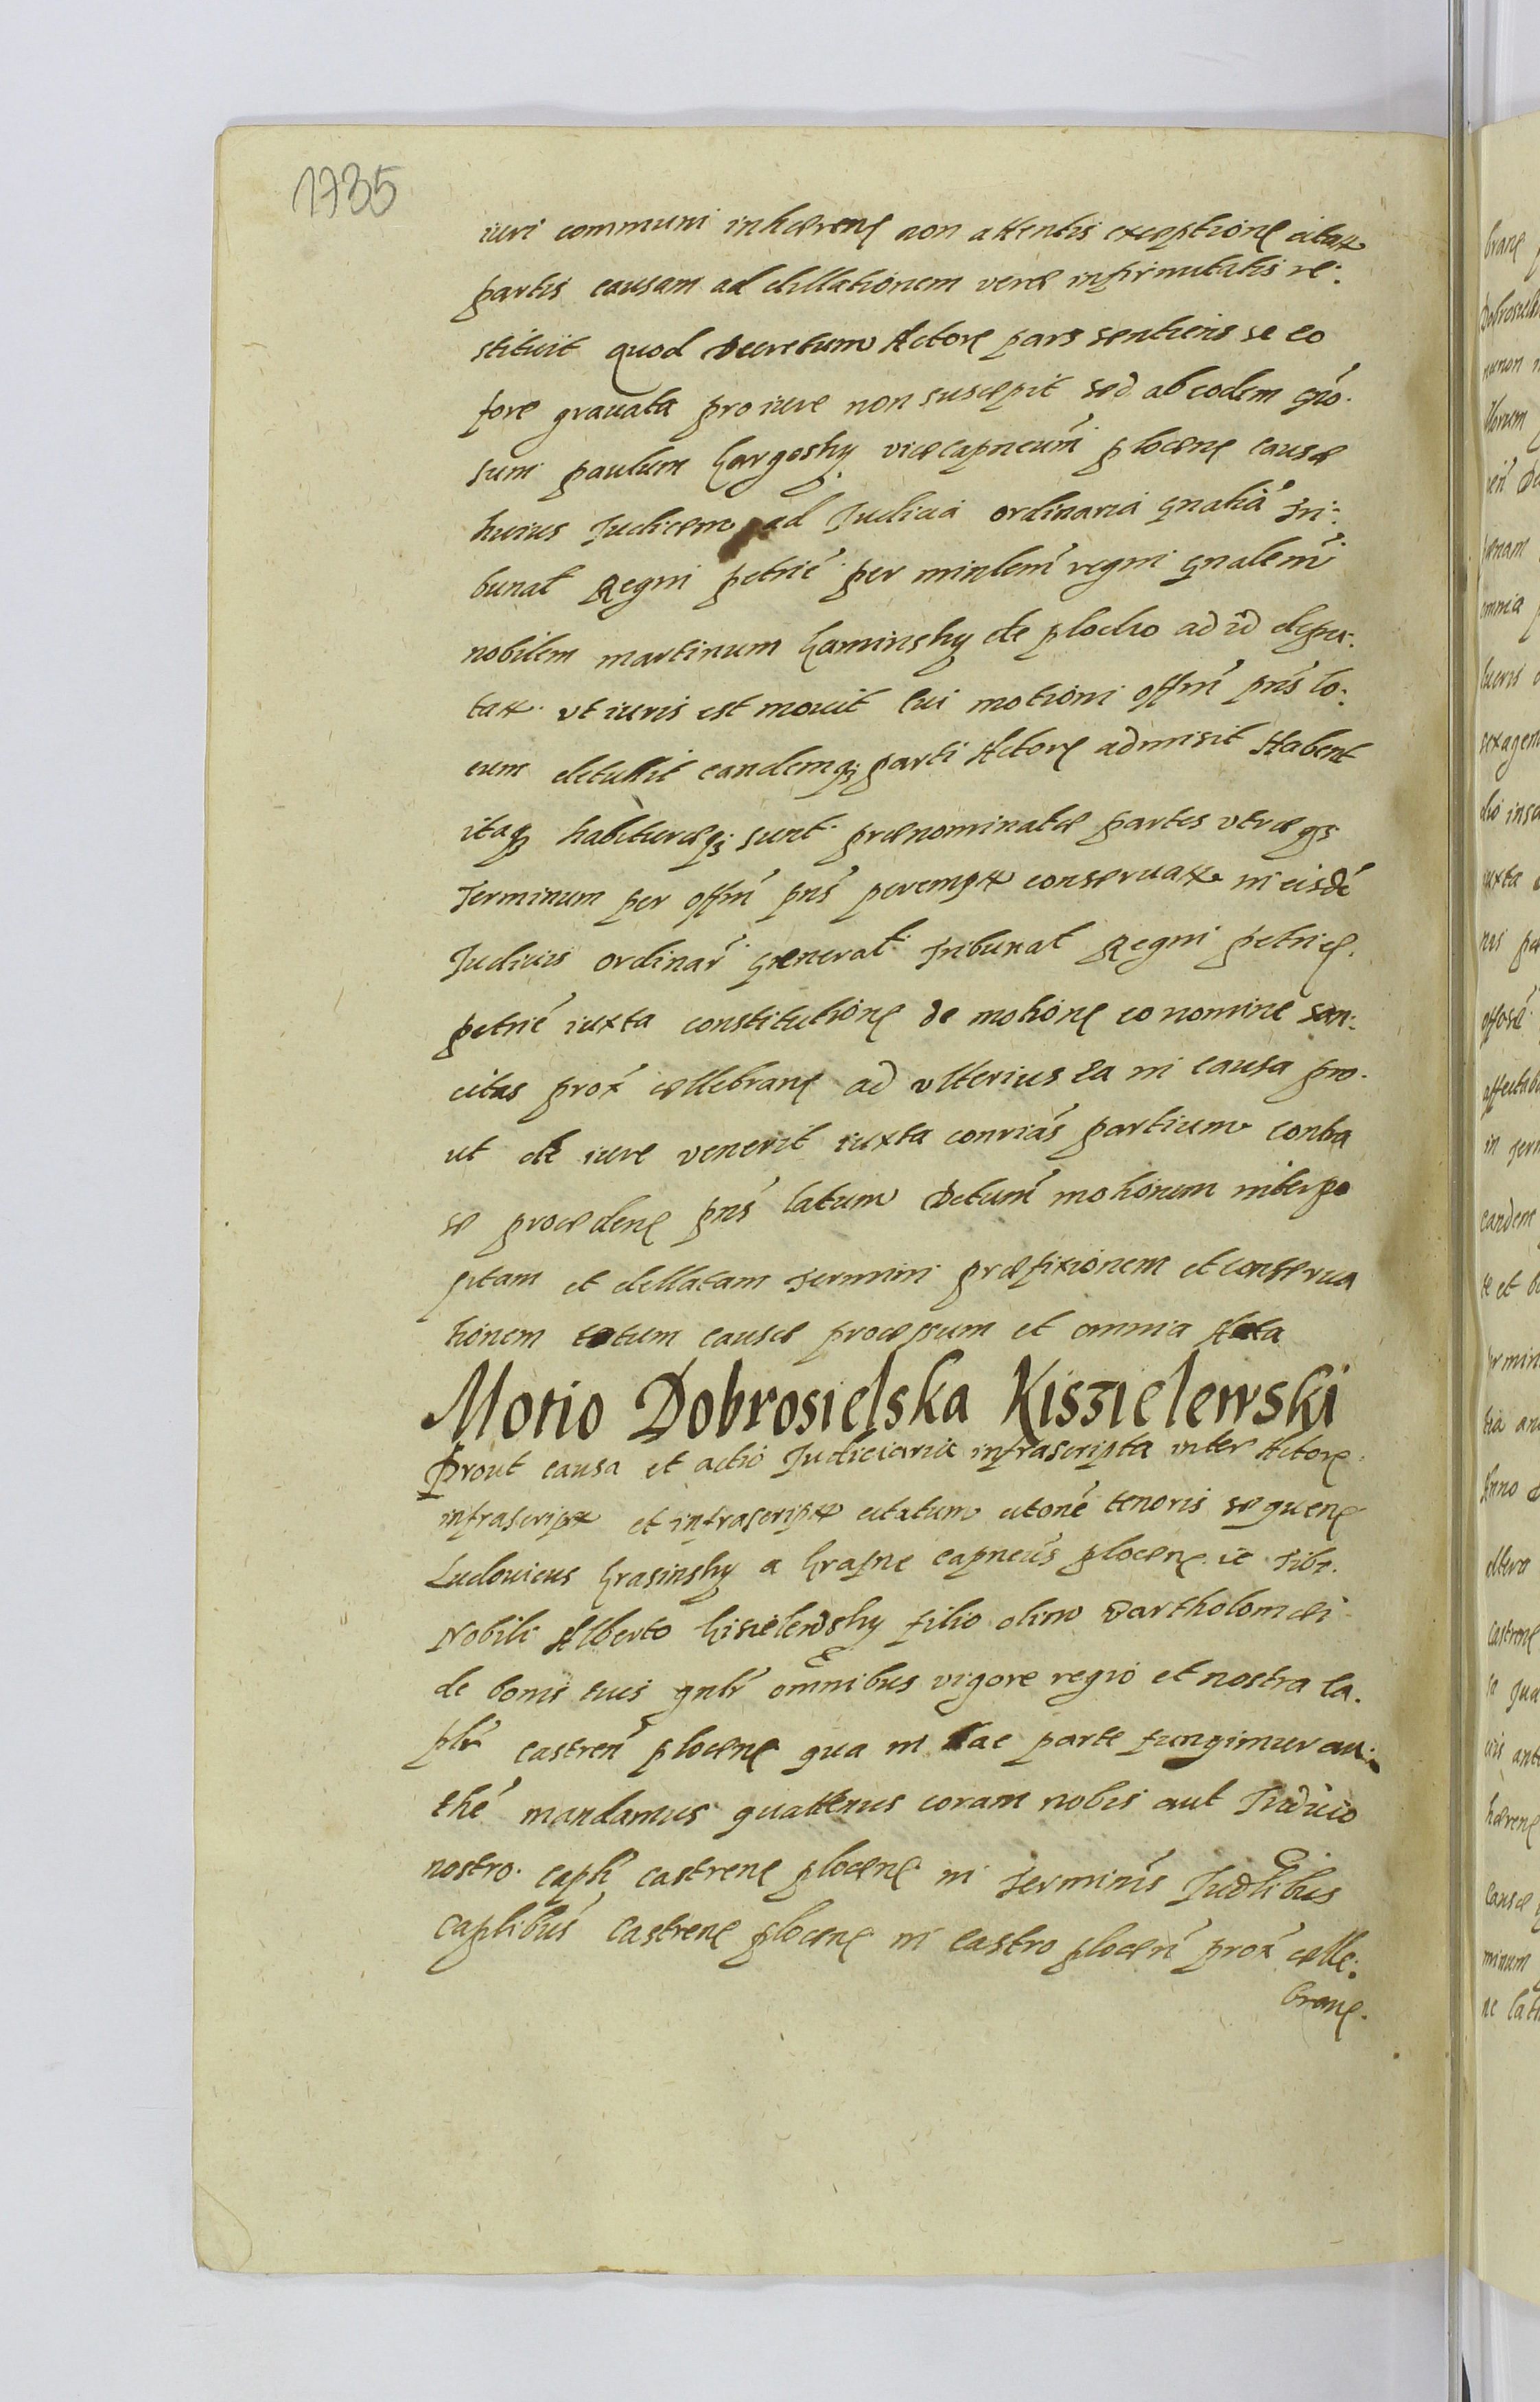 1735
iuri communi inhærenς non attentis exceptionς citatæ
partis causam ad dillationem veræ infirmitatis re:
stituit quod Decretum Actorς pars sentiens se eo
fore grauata pro iure non suscepit sed ab eodem gńo.
sum paulum Gargosky vicecapneum̄ plocenς causæ
huius Judicem ad Judicia ordinaria gnalia Tri:
bunal Regni petrić per minlem̄ regni gnalem̄
nobilem martinum Kaminsky de plocko ad id depu:
tat. vt iuris est mouit Cui motioni offm̄ pns̄ lo:
cum detullit eandemq; parti Actorς admisit Habent
itaq; habituræq; sunt prænominatæ partes vtræq;
Terminum per offm̄ pns̄ perempt conseruat in eisdé
Judiciis ordinar̄ general Tribunal Regni petricς.
petrić iuxta constitutionς de motionς eo nomine san:
citas prox̄ cellebranς ad vlterius ea in causa pro.
ut de iure venerit iuxta conrias̄ partium contra
se procedenς pns̄ latum Dctum̄ motionem interpo
sitam et dellatam Termini præfixionem et conserua
tionem totum causæ processum et omnia Acta
Motio Dobrosielska Kisszielewski
Prout causa et actio Judiciaria infrascripta inter Actorς.
infrascript et infrascript citatum citone̅ tenoris sequenς
Ludouicus Krasinsky a Krasne capneus̄ plocenς ic Tibi.
Nobili Alberto Kisielewsky filio olim Bartholomæi
de bonis tuis gnlr̄ omnibus vigore regio et nostra ca.
plr̄ castren̄ plocenς qua in hac parte fungimur au:
thé mandamus quattenus coram nobis aut Judicio
nostro capli̅ castrenς plocenς in Terminis Judlibus
caplibus̄ castrenς plocenς in castro plocen̄ prox̄ celle:
branς.